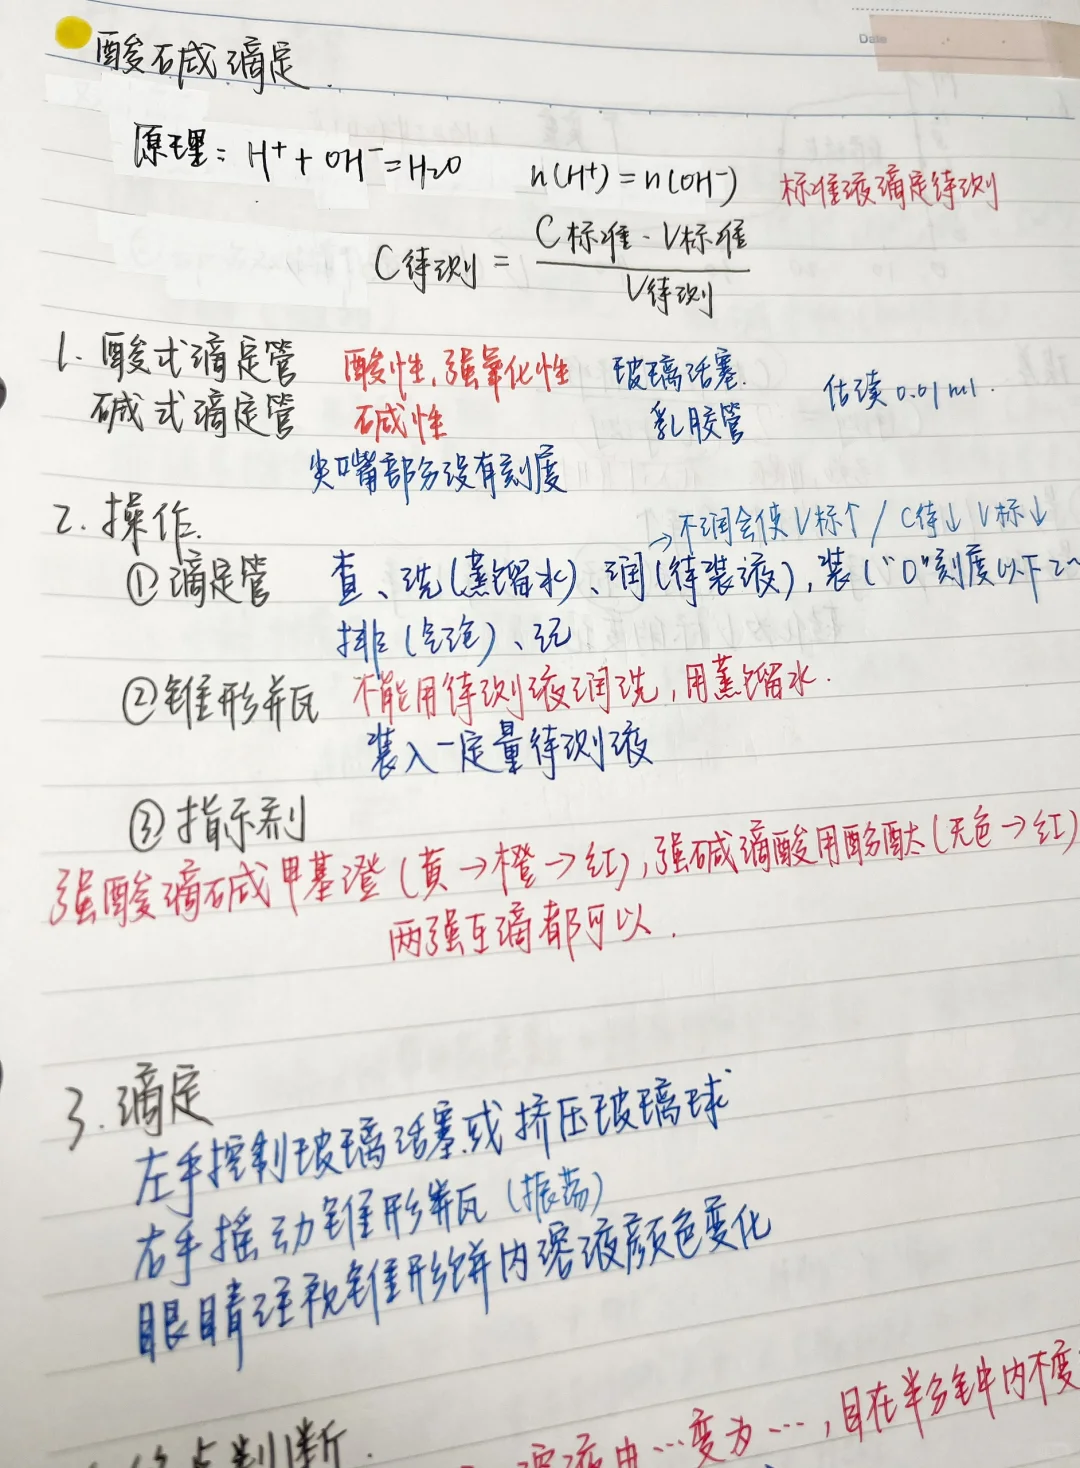 Date
酸碱滴定
原理: H⁺ + OH⁻ = H₂O n(H⁺) = n(OH⁻) 标准液滴定待测
C待测 = C标准 · V标准 / V待测
1. 酸式滴定管 酸性,强氧化性 玻璃活塞. 估读0.01ml.
碱式滴定管 碱性 乳胶管
尖嘴部分没有刻度
2. 操作. →不润会使V标↑ / C待↓ V标↓
①滴定管 查、洗(蒸馏水)、润(待装液),装("0"刻度以下2~
排(气泡)、记
②锥形瓶 不能用待测液润洗,用蒸馏水.
装入一定量待测液
③指示剂
强酸滴碱甲基澄(黄→橙→红),强碱滴酸用酚酞(无色→红)
两强互滴都可以.
3. 滴定
左手控制玻璃活塞或挤压玻璃球
右手摇动锥形瓶(振荡)
眼睛注视锥形瓶内溶液颜色变化
点判断.
溶液由…变为…,且在半分钟内不变